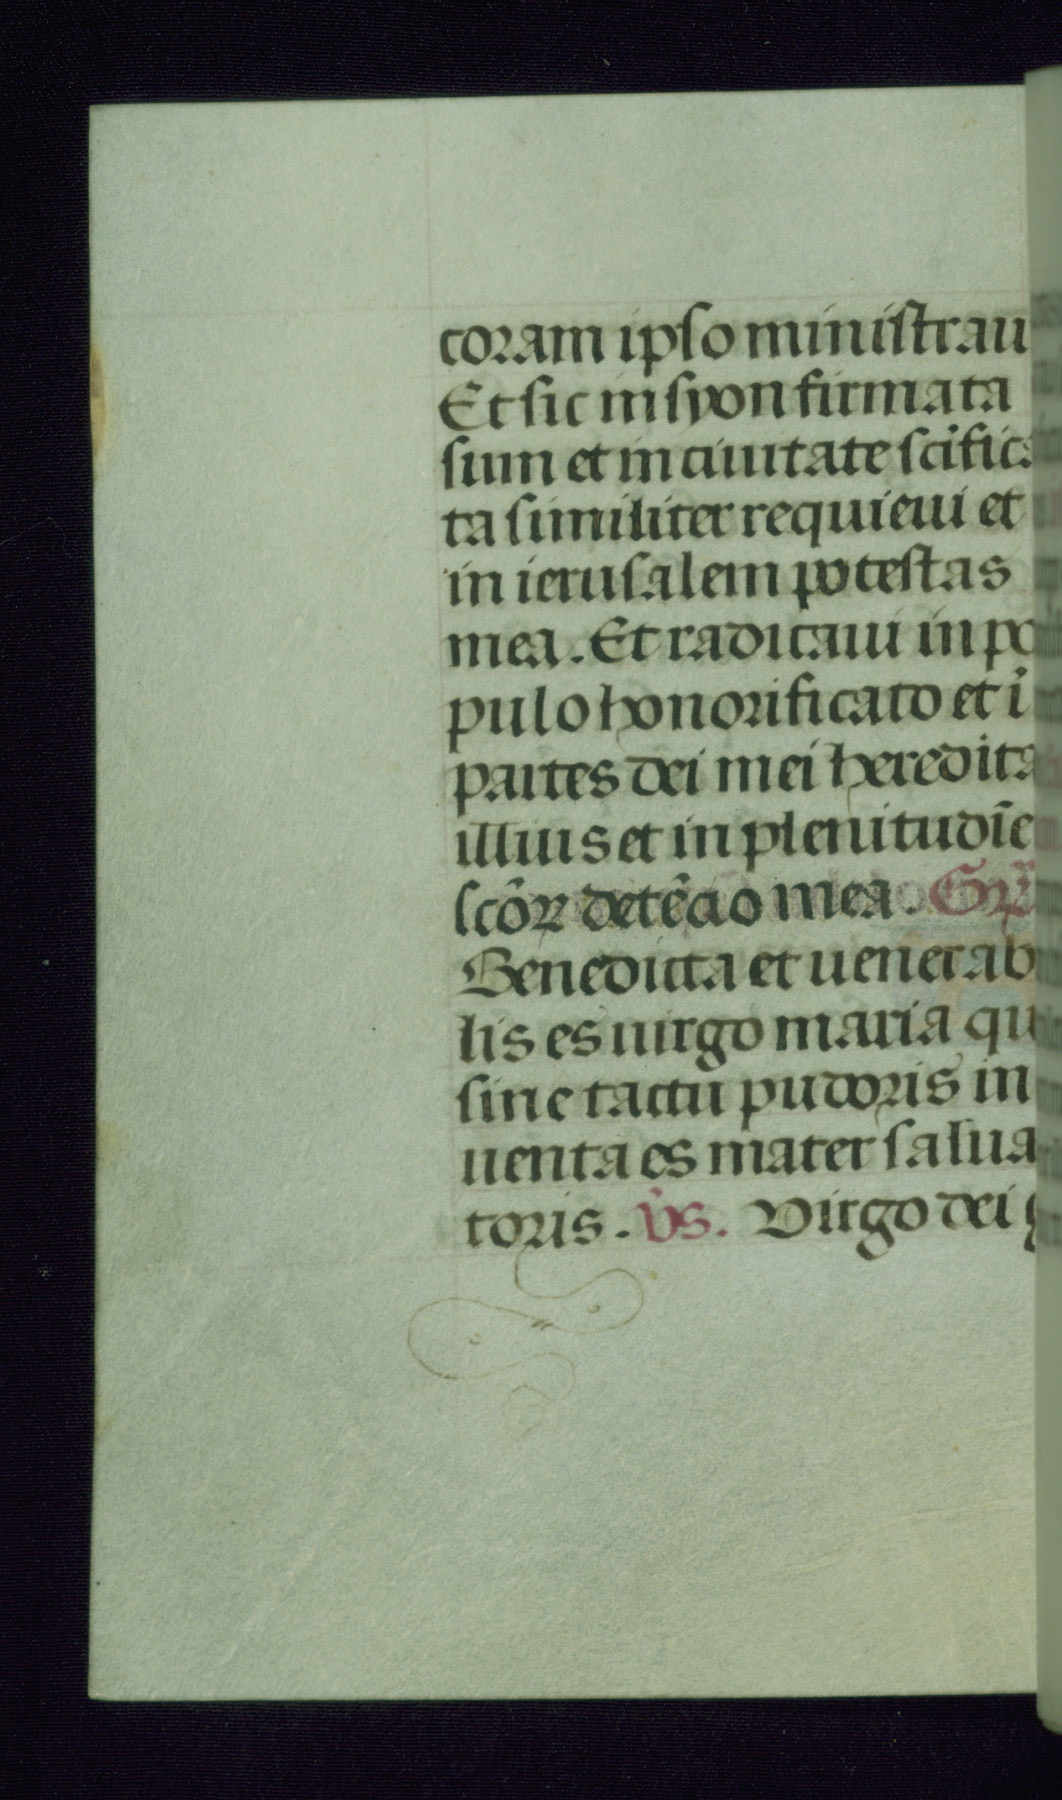 coram ipso ministrau
Et sic in syon firmata
sum et in ciuitate sc̄ifica
ta similiter requieui et
in ierusalem potestas
mea. Et radicaui in po
pulo honorificato et ī
partes dei mei heredita
illius et in plenitudīe
scōꝝ detēcio mea. Gr̄
Benedicta et uenerab
lis es uirgo maria qu
sine tactu pudoris in
uenta es mater salua
toris. v̄s. Virgo dei